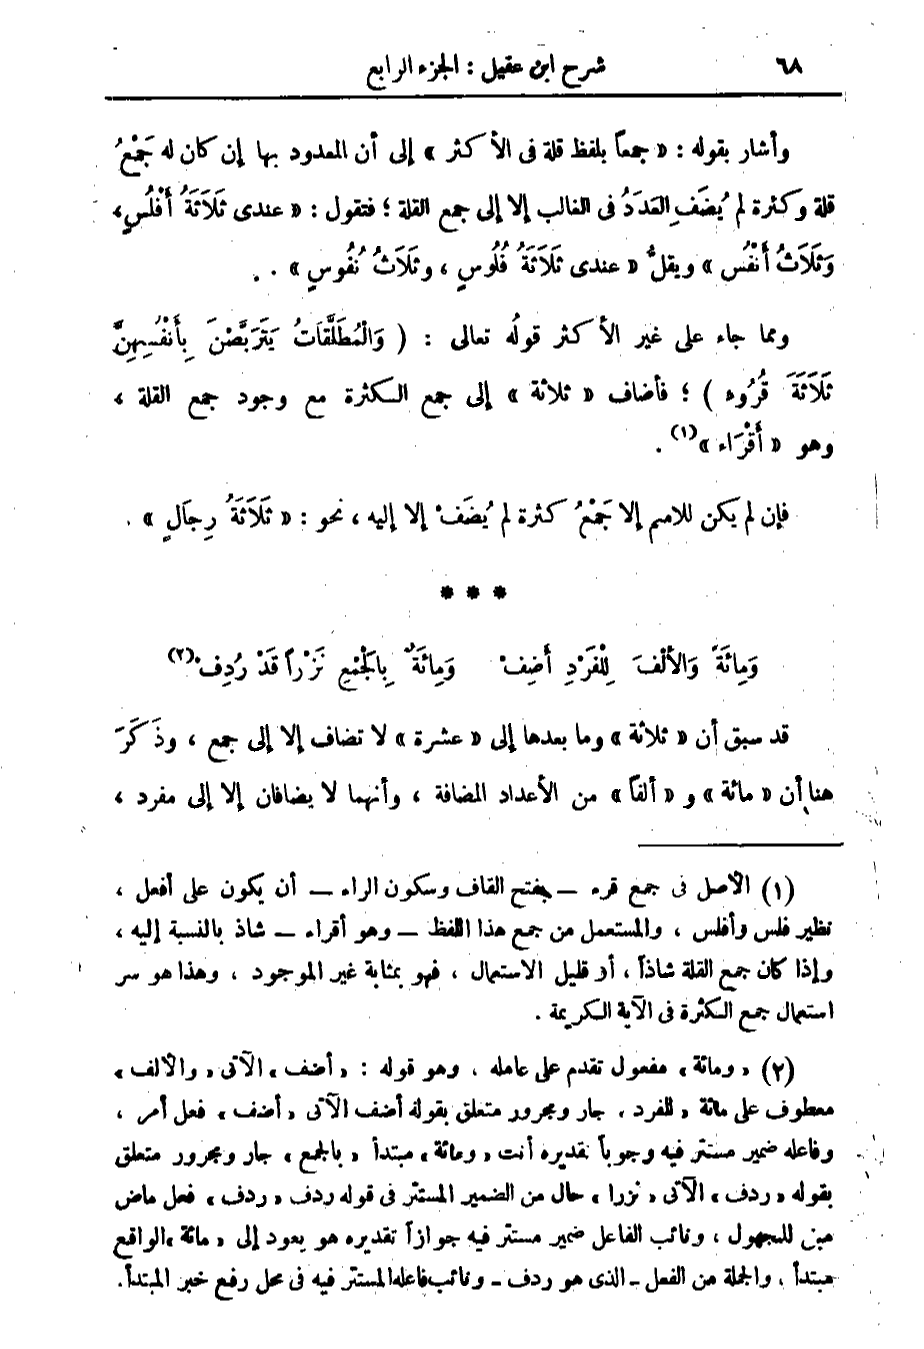 ٦٨ شرح ابن عقيل : الجزء الرابع
وأشار بقوله : « جمعاً بلفظ قلة فى الأكثر » إلى أن المعدود بها إن كان له جَمْعُ
قلة وكثرة لم يُضَفِ العَدَدُ فى الغالب إلا إلى جمع القلة ؛ فتقول : « عندى ثَلَاثَةُ أَفْلُسٍ ،
وَثَلَاثُ أَنْفُس » ويقلُّ « عندى ثَلَاثَةُ فُلُوسٍ ، وثَلَاثُ نُفُوسٍ » .
ومما جاء على غير الأكثر قولُه تعالى : ( وَالْمُطَلَّقَاتُ يَتَرَبَّصْنَ بِأَنْفُسِهِنَّ
ثَلَاثَةَ قُرُوء ) ؛ فأضاف « ثلاثة » إلى جمع الكثرة مع وجود جمع القلة ،
وهو « أَقْرَاء »(١) .
فإن لم يكن للاسم إلا جَمْعُ كثرة لم يُضَفْ إلا إليه ، نحو : « ثَلَاثَةُ رِجَالٍ » .
* * *
وَمِائَةً وَالألْفَ لِلْفَرْدِ أَضِفْ وَمِائَةٌ بِالْجَمْعِ نَزْراً قَدْ رُدِفْ(٢)
قد سبق أن « ثلاثة » وما بعدها إلى « عشرة » لا تضاف إلا إلى جمع ، وذَكَرَ
هنا أن « مائة » و « ألفاً » من الأعداد المضافة ، وأنهما لا يضافان إلا إلى مفرد ،
(١) الأصل فى جمع قرء — بفتح القاف وسكون الراء — أن يكون على أفعل ،
نظير فلس وأفلس ، والمستعمل من جمع هذا اللفظ — وهو أقراء — شاذ بالنسبة إليه ،
وإذا كان جمع القلة شاذاً ، أو قليل الاستعمال ، فهو بمثابة غير الموجود ، وهذا هو سر
استعمال جمع الكثرة فى الآية الكريمة .
(٢) « ومائة » مفعول تقدم على عامله ، وهو قوله : « أضف » الآتى « والألف »
معطوف على مائة « للفرد » جار ومجرور متعلق بقوله أضف الآتى « أضف » فعل أمر ،
وفاعله ضمير مستتر فيه وجوباً تقديره أنت « ومائة » مبتدأ « بالجمع » جار ومجرور متعلق
بقوله « ردف » الآتى « نزرا » حال من الضمير المستتر فى قوله ردف « ردف » فعل ماض
مبنى للمجهول ، ونائب الفاعل ضمير مستتر فيه جوازاً تقديره هو يعود إلى « مائة » الواقع
مبتدأ ، والجملة من الفعل ـ الذى هو ردف ـ ونائب فاعله المستتر فيه فى محل رفع خبر المبتدأ .